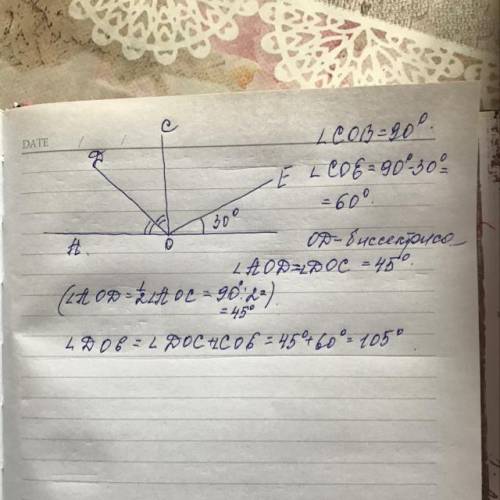 DATE / /
C
D
E
A
O
30°
∠COB=90°.
∠COE=90°-30°=
=60°.
OD-биссектриса
∠AOD=∠DOC=45°.
(∠AOD=½∠AOC=90°:2=
=45°)
∠DOE=∠DOC+∠COE=45°+60°=105°